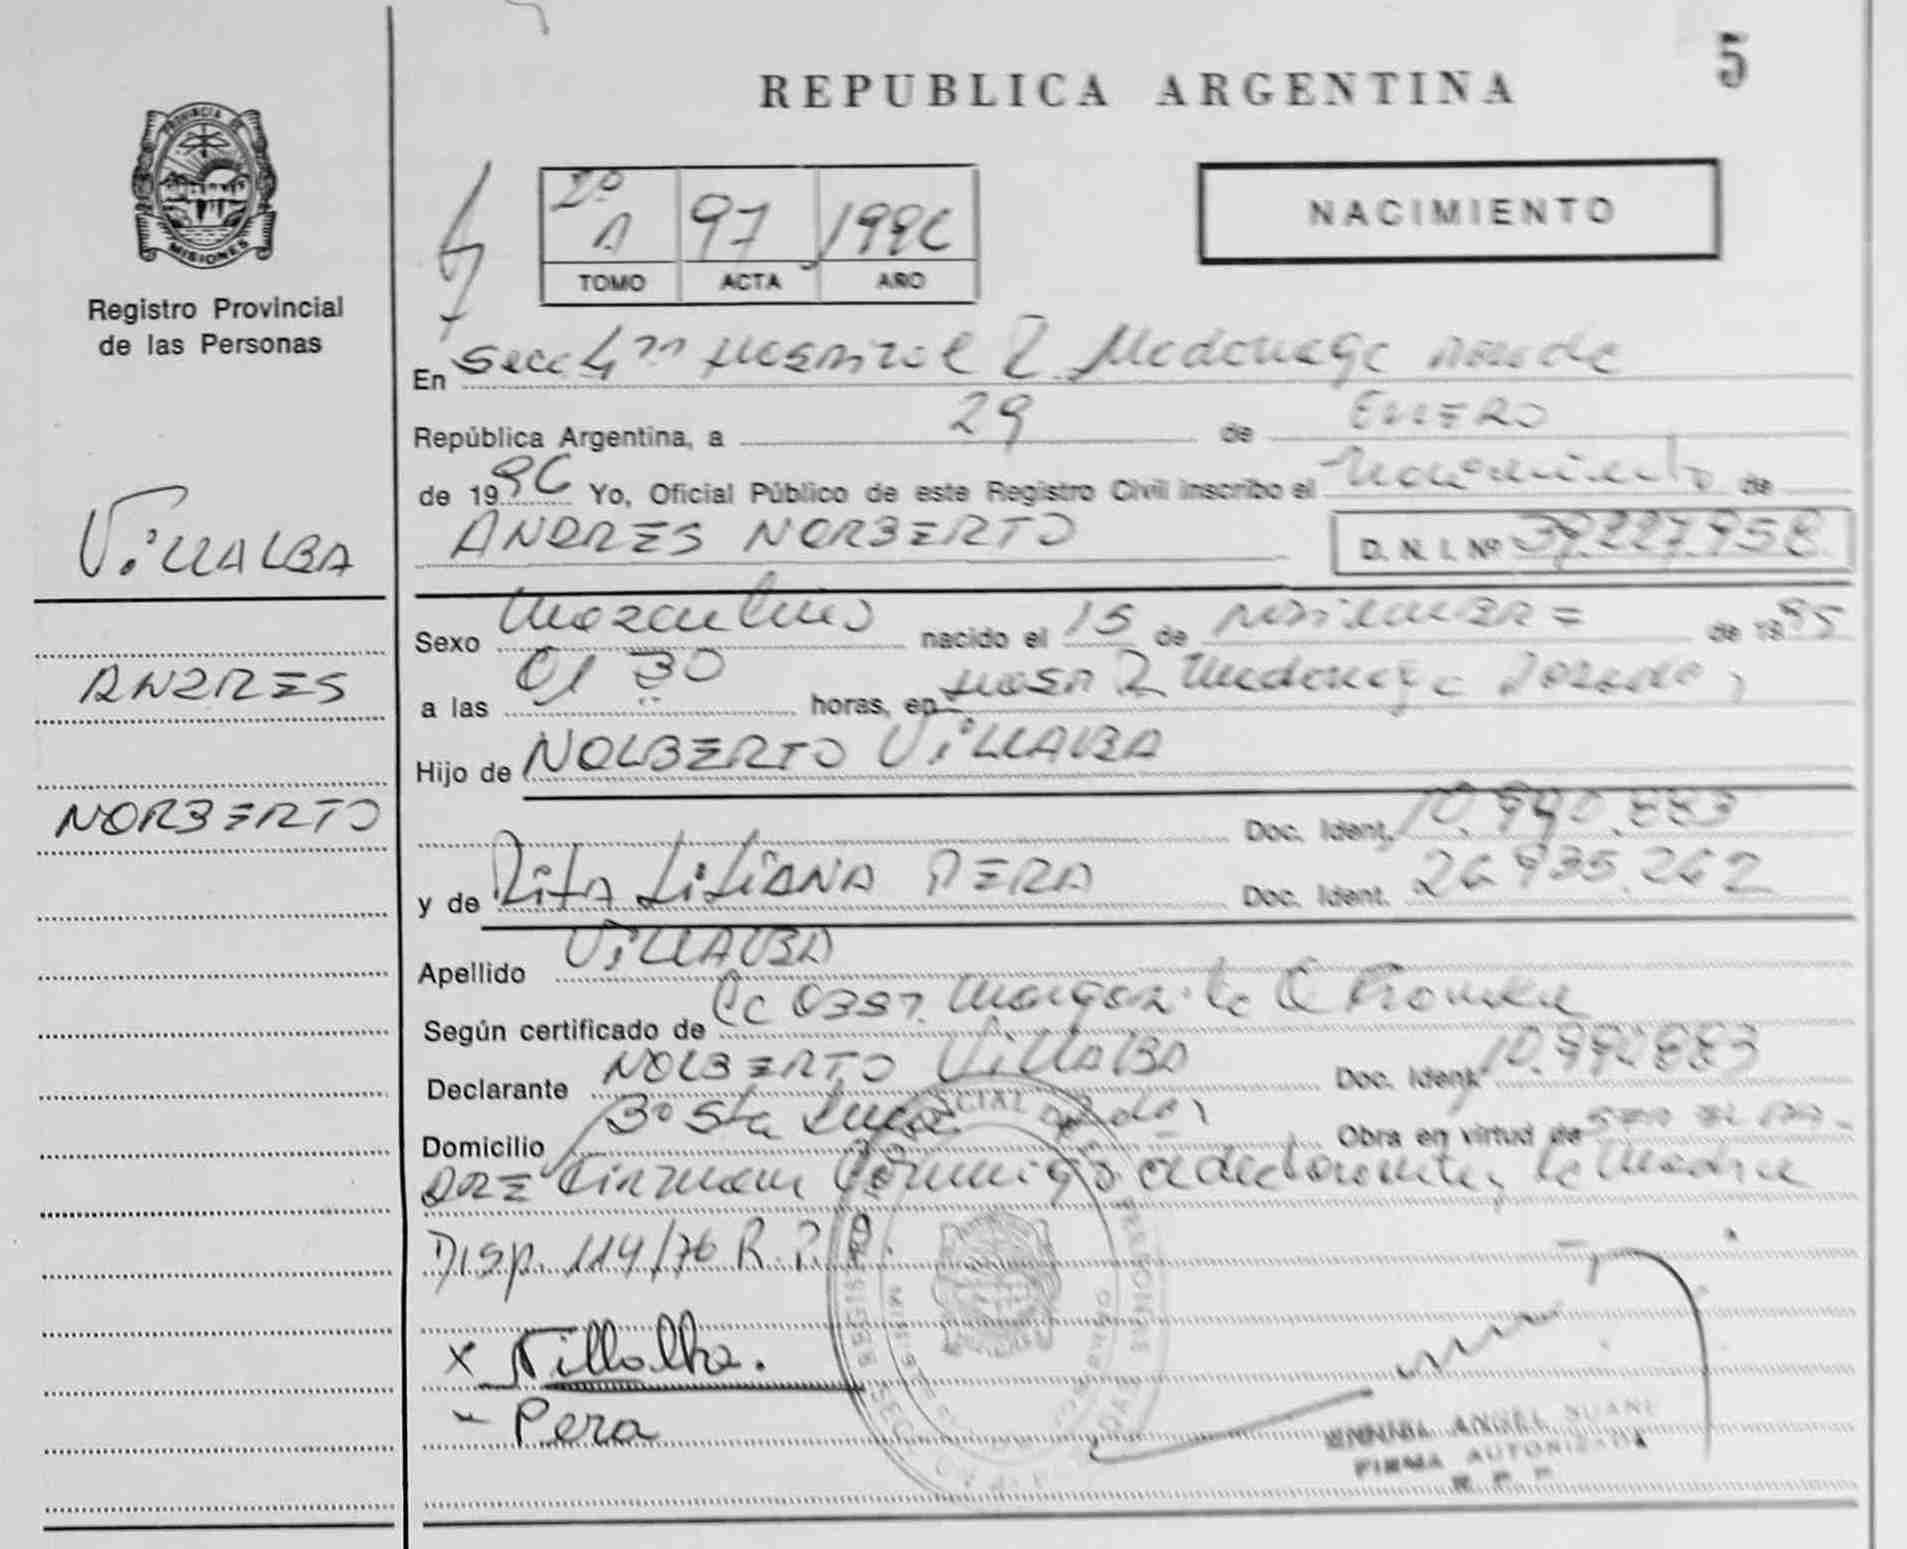 5
REPUBLICA ARGENTINA
PROVINCIA DE
MISIONES
Registro Provincial
de las Personas
2º A 97 1996
TOMO ACTA AÑO
NACIMIENTO
En Secc 4ta
República Argentina, a 29 de ENERO
de 1996 Yo, Oficial Público de este Registro Civil inscribo el Nacimiento de
ANDRES NORBERTO D. N. I. Nº 39.227.958
VILLALBA
ANDRES
NORBERTO
Sexo Masculino nacido el 15 de de 1995
a las 01 30 horas, en
Hijo de NOLBERTO VILLALBA
Doc. Ident. 10.990.883
y de Rita Liliana PERA Doc. Ident. 24.935.262
Apellido VILLALBA
Según certificado de
Declarante NOLBERTO VILLALBA Doc. Ident. 10.990883
Domicilio Bº Sta Obra en virtud de
Firman el declarante, la Madre
Disp. 114/76 R.P.P.
x Villalba.
- Pera
ANGEL
FIRMA AUTORIZADA
R. P. P.